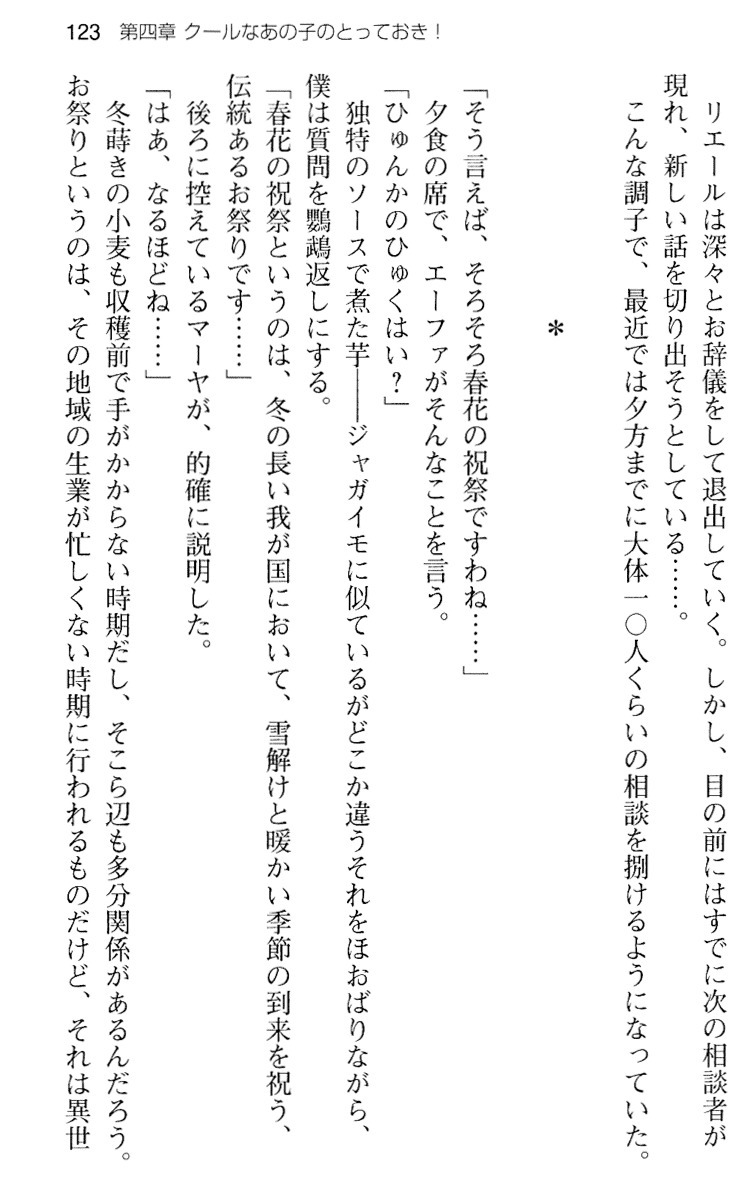 123 第四章 クールなあの子のとっておき！
リエールは深々とお辞儀をして退出していく。しかし、目の前にはすでに次の相談者が
現れ、新しい話を切り出そうとしている……。
こんな調子で、最近では夕方までに大体一〇人くらいの相談を捌けるようになっていた。
＊
「そう言えば、そろそろ春花の祝祭ですわね……」
夕食の席で、エーファがそんなことを言う。
「ひゅんかのひゅくはい？」
独特のソースで煮た芋――ジャガイモに似ているがどこか違うそれをほおばりながら、
僕は質問を鸚鵡返しにする。
「春花の祝祭というのは、冬の長い我が国において、雪解けと暖かい季節の到来を祝う、
伝統あるお祭りです……」
後ろに控えているマーヤが、的確に説明した。
「はあ、なるほどね……」
冬蒔きの小麦も収穫前で手がかからない時期だし、そこら辺も多分関係があるんだろう。
お祭りというのは、その地域の生業が忙しくない時期に行われるものだけど、それは異世